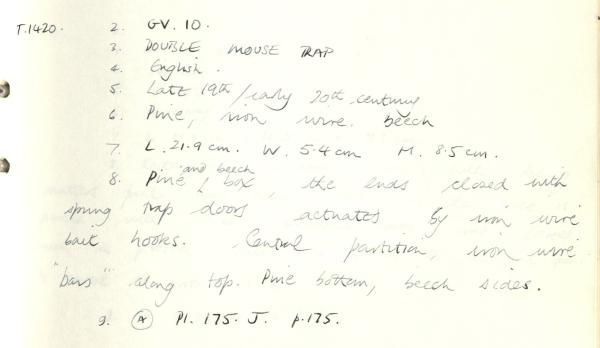 T.1420. 2. GV. 10.
3. DOUBLE MOUSE TRAP
4. English.
5. Late 19th/early 20th century
6. Pine, iron wire. beech
7. L. 21.9 cm. W. 5.4 cm H. 8.5 cm.
and beech
8. Pine, box, the ends closed with
spring trap doors actuates by iron wire
bait hooks. Central partition, iron wire
"bars" along top. Pine bottom, beech sides.
9. A Pl. 175. J. p.175.